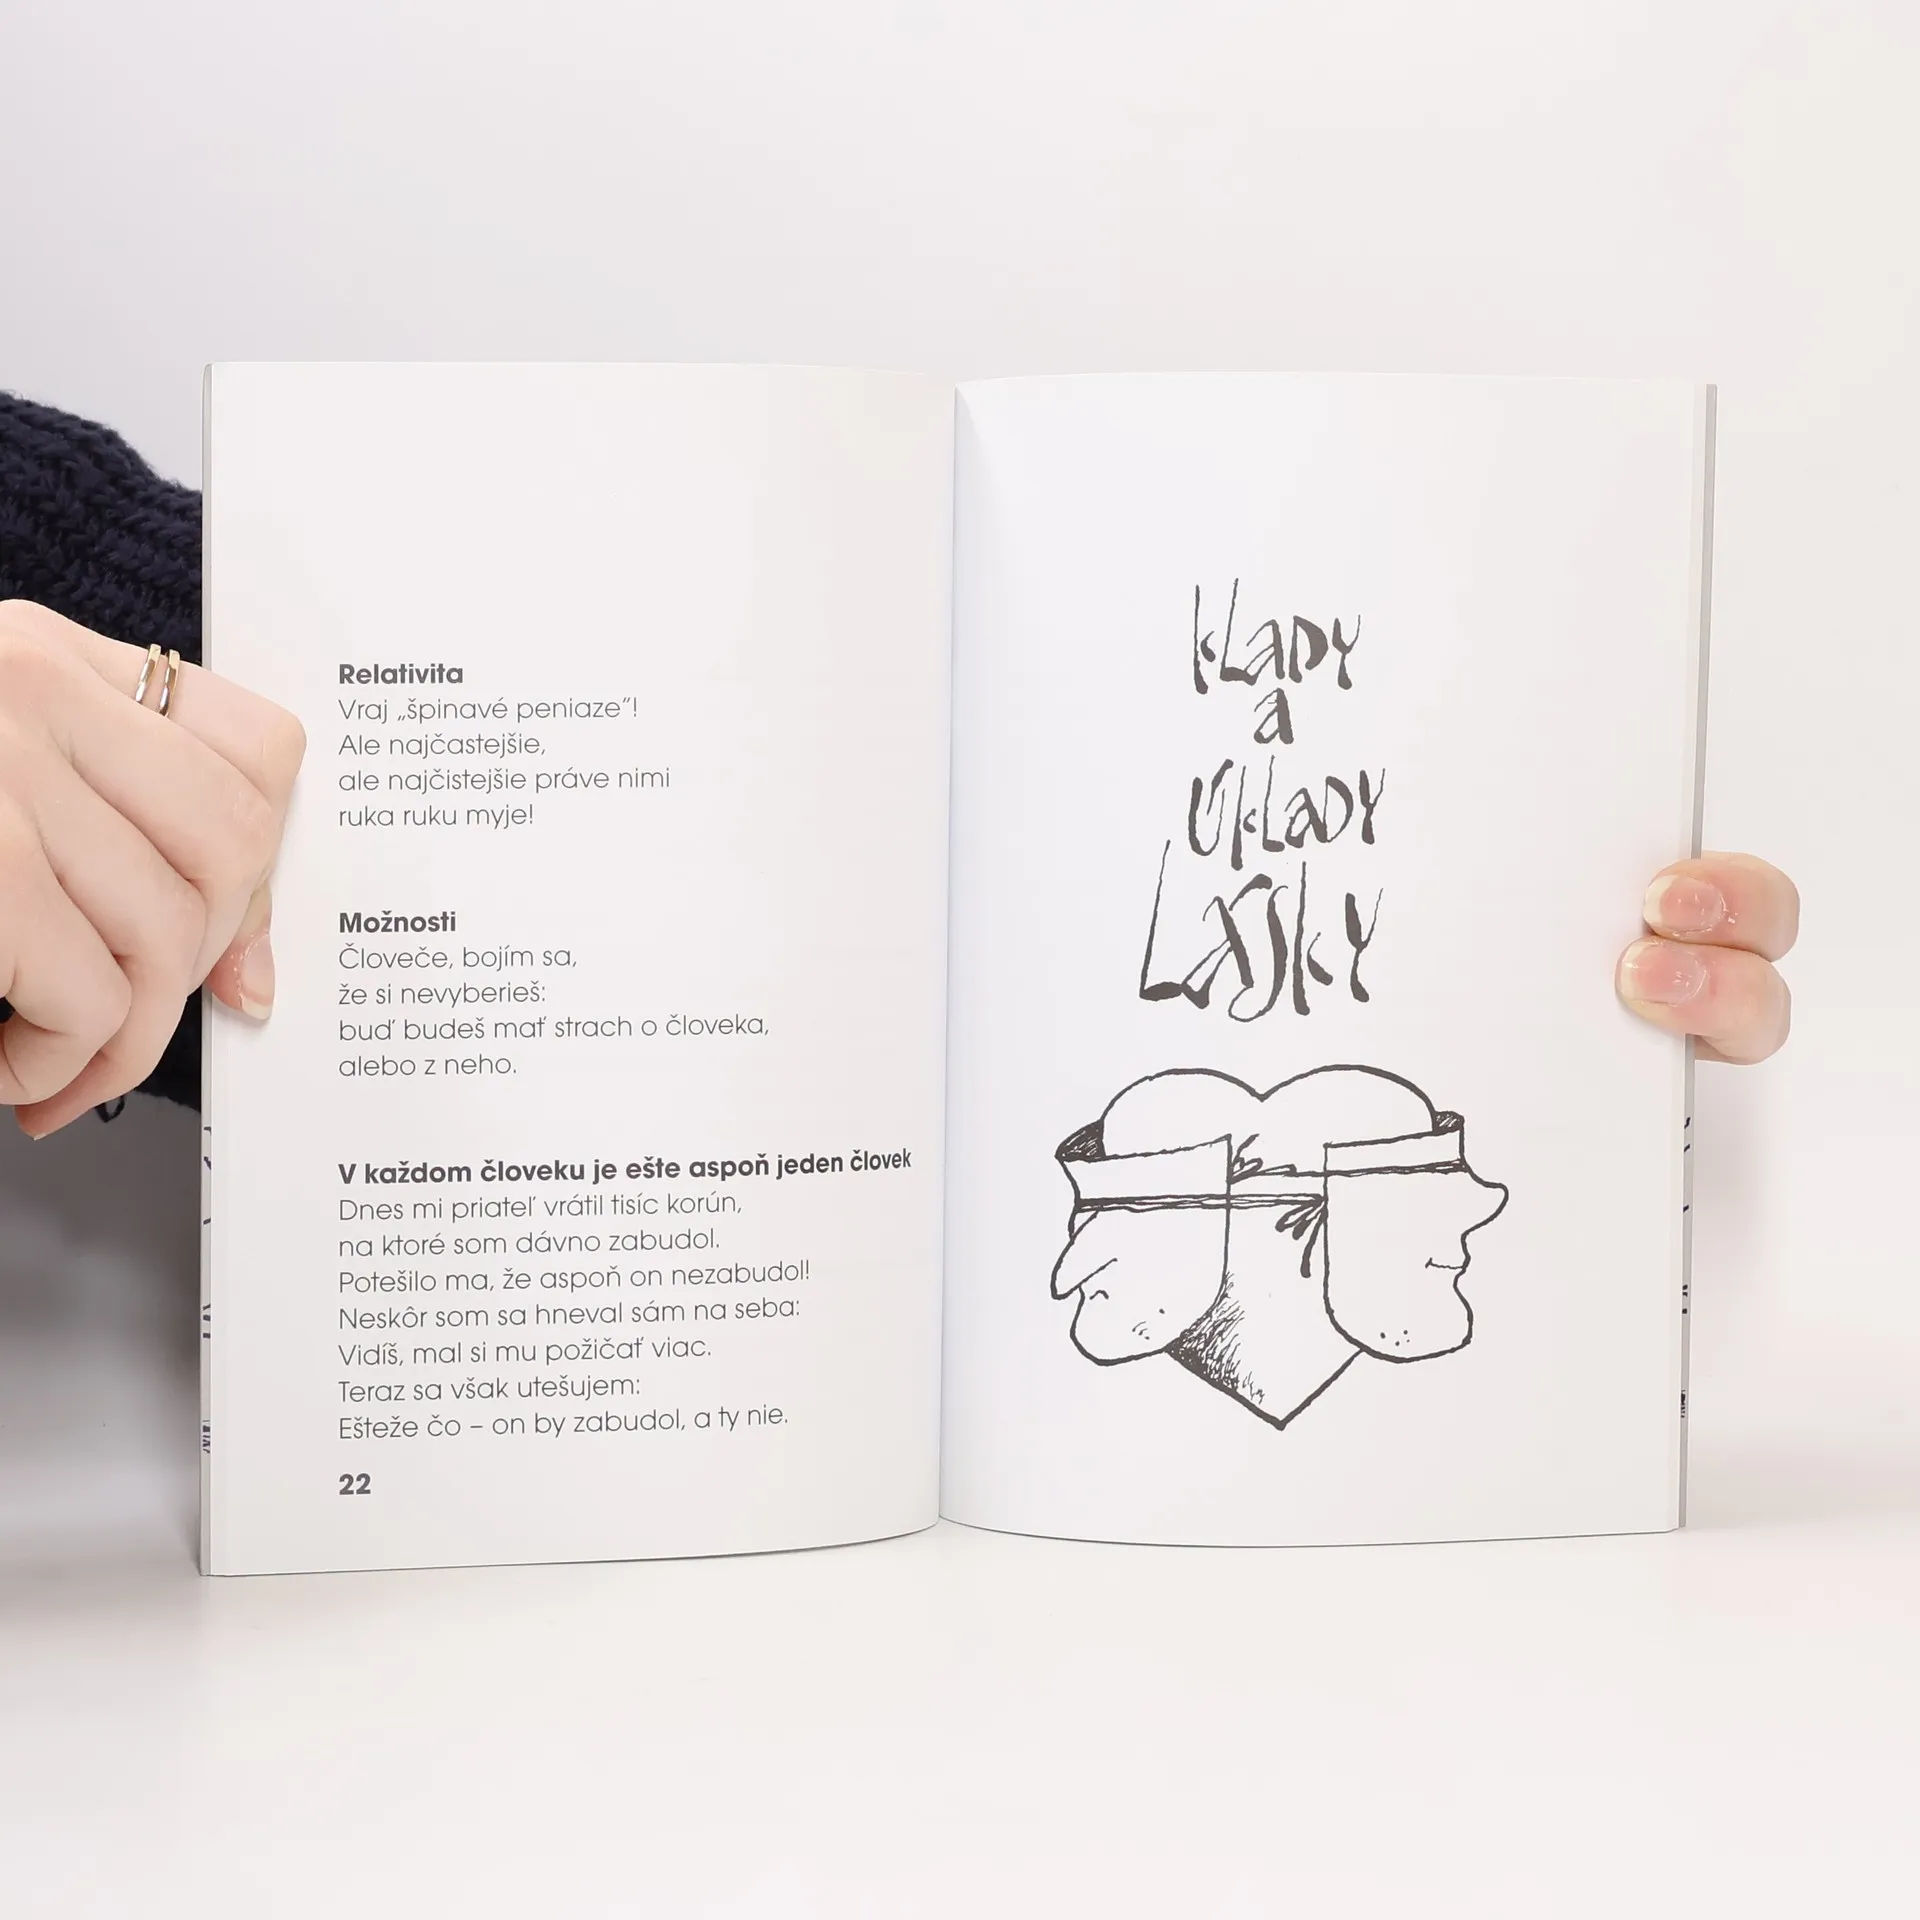 Relativita
Vraj „špinavé peniaze"!
Ale najčastejšie,
ale najčistejšie práve nimi
ruka ruku myje!
Možnosti
Človeče, bojím sa,
že si nevyberieš:
buď budeš mať strach o človeka,
alebo z neho.
V každom človeku je ešte aspoň jeden človek
Dnes mi priateľ vrátil tisíc korún,
na ktoré som dávno zabudol.
Potešilo ma, že aspoň on nezabudol!
Neskôr som sa hneval sám na seba:
Vidíš, mal si mu požičať viac.
Teraz sa však utešujem:
Ešteže čo – on by zabudol, a ty nie.
22
KLADY
a
ÚKLADY
LÁSKY